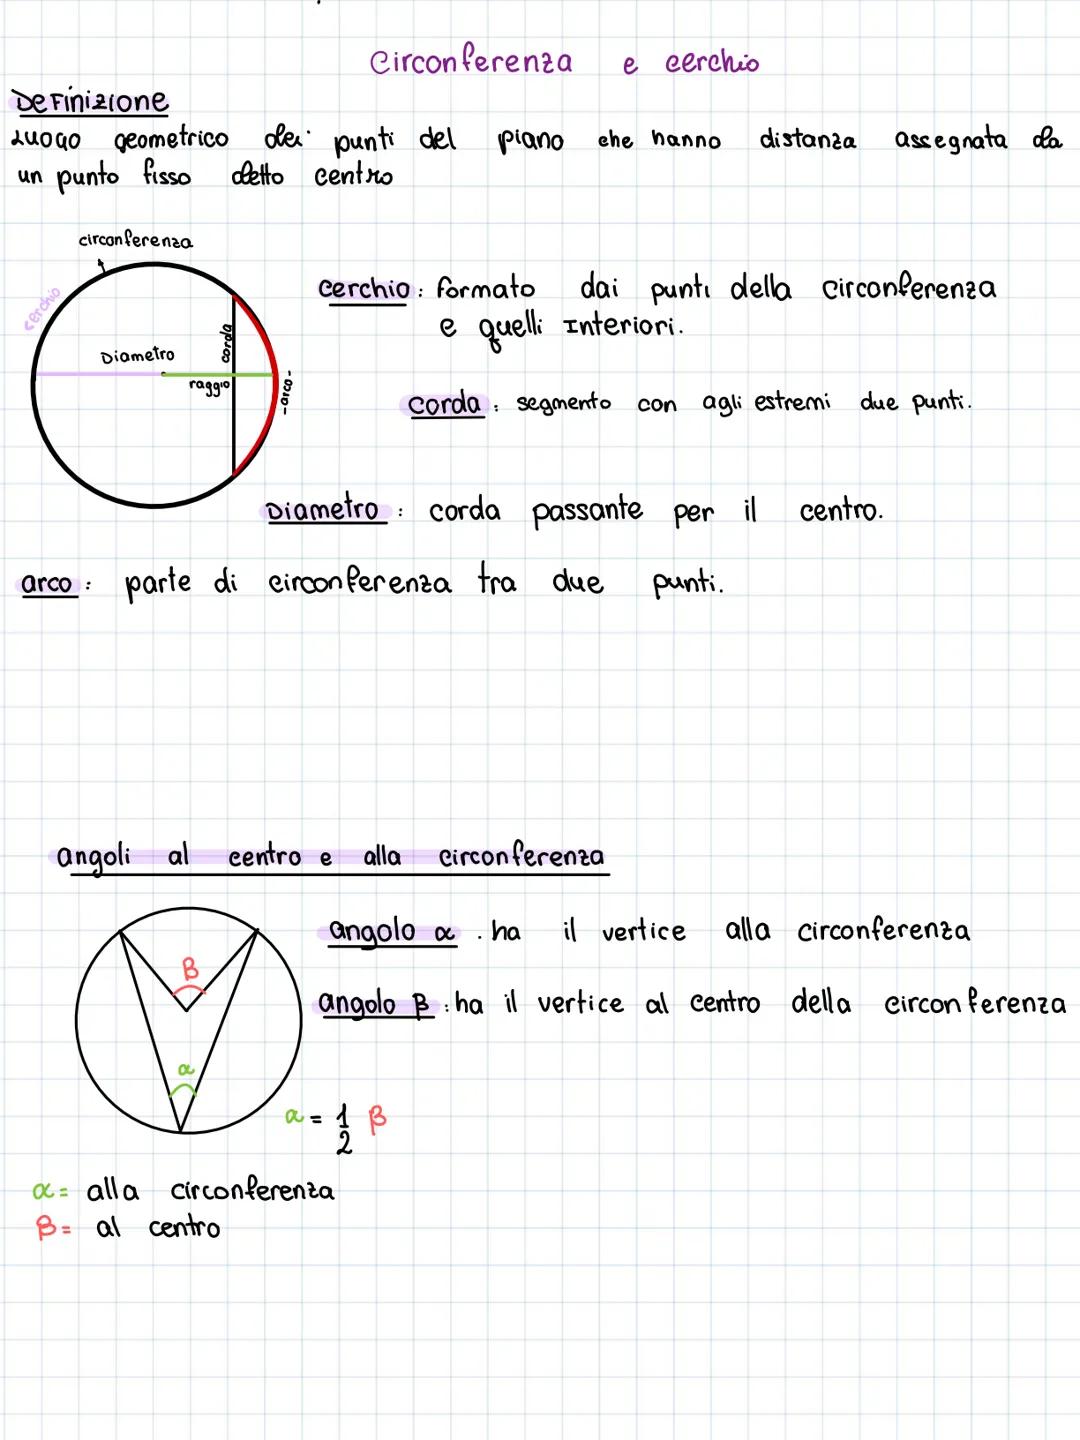 Circonferenza e cerchio
Definizione
Luogo geometrico dei punti del piano che hanno distanza assegnata da
un punto fisso detto centro
circonferenza
cerchio
Diametro
corda
raggio
-arco-
cerchio: formato dai punti della circonferenza
e quelli Interiori.
corda: segmento con agli estremi due punti.
Diametro: corda passante per il centro.
arco: parte di circonferenza tra due punti.
angoli al centro e alla circonferenza
β
α
angolo α. ha il vertice alla circonferenza
angolo β: ha il vertice al centro della circonferenza
α = 1/2 β
α = alla circonferenza
β = al centro